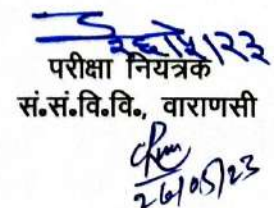 २६/५/२३
परीक्षा नियंत्रक
सं.सं.वि.वि., वाराणसी
26/05/23